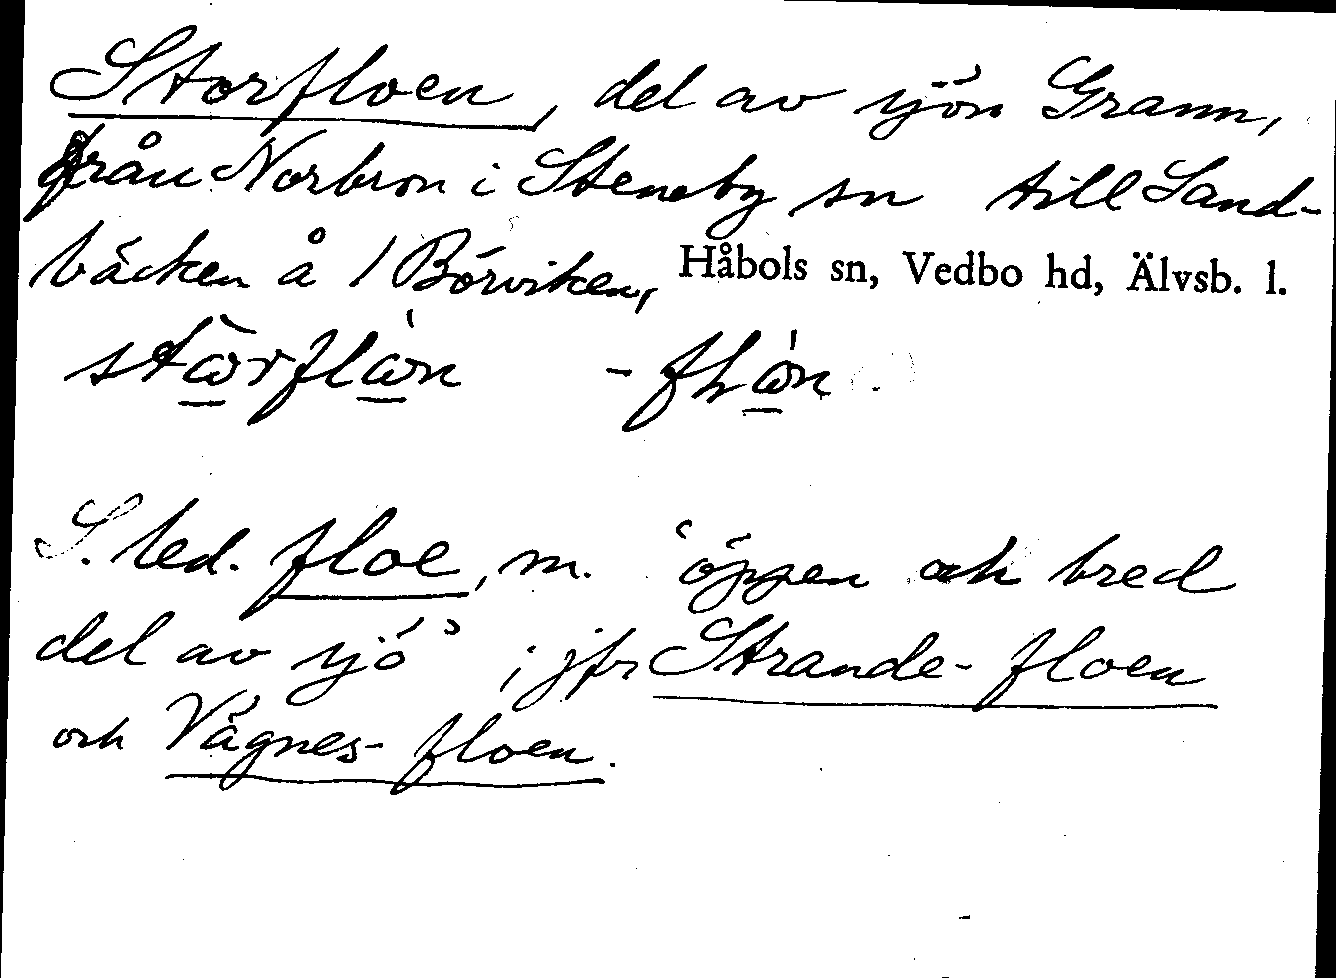 Storfloen, del av sjön Grann,
från Norbron i Steneby sn till Sand-
bäcken å / Börviken, Håbols sn, Vedbo hd, Älvsb. l.
S. led. floe, m. 'öppen och bred
del av sjö'; jfr Strande-floen
och Vågnes-floen.